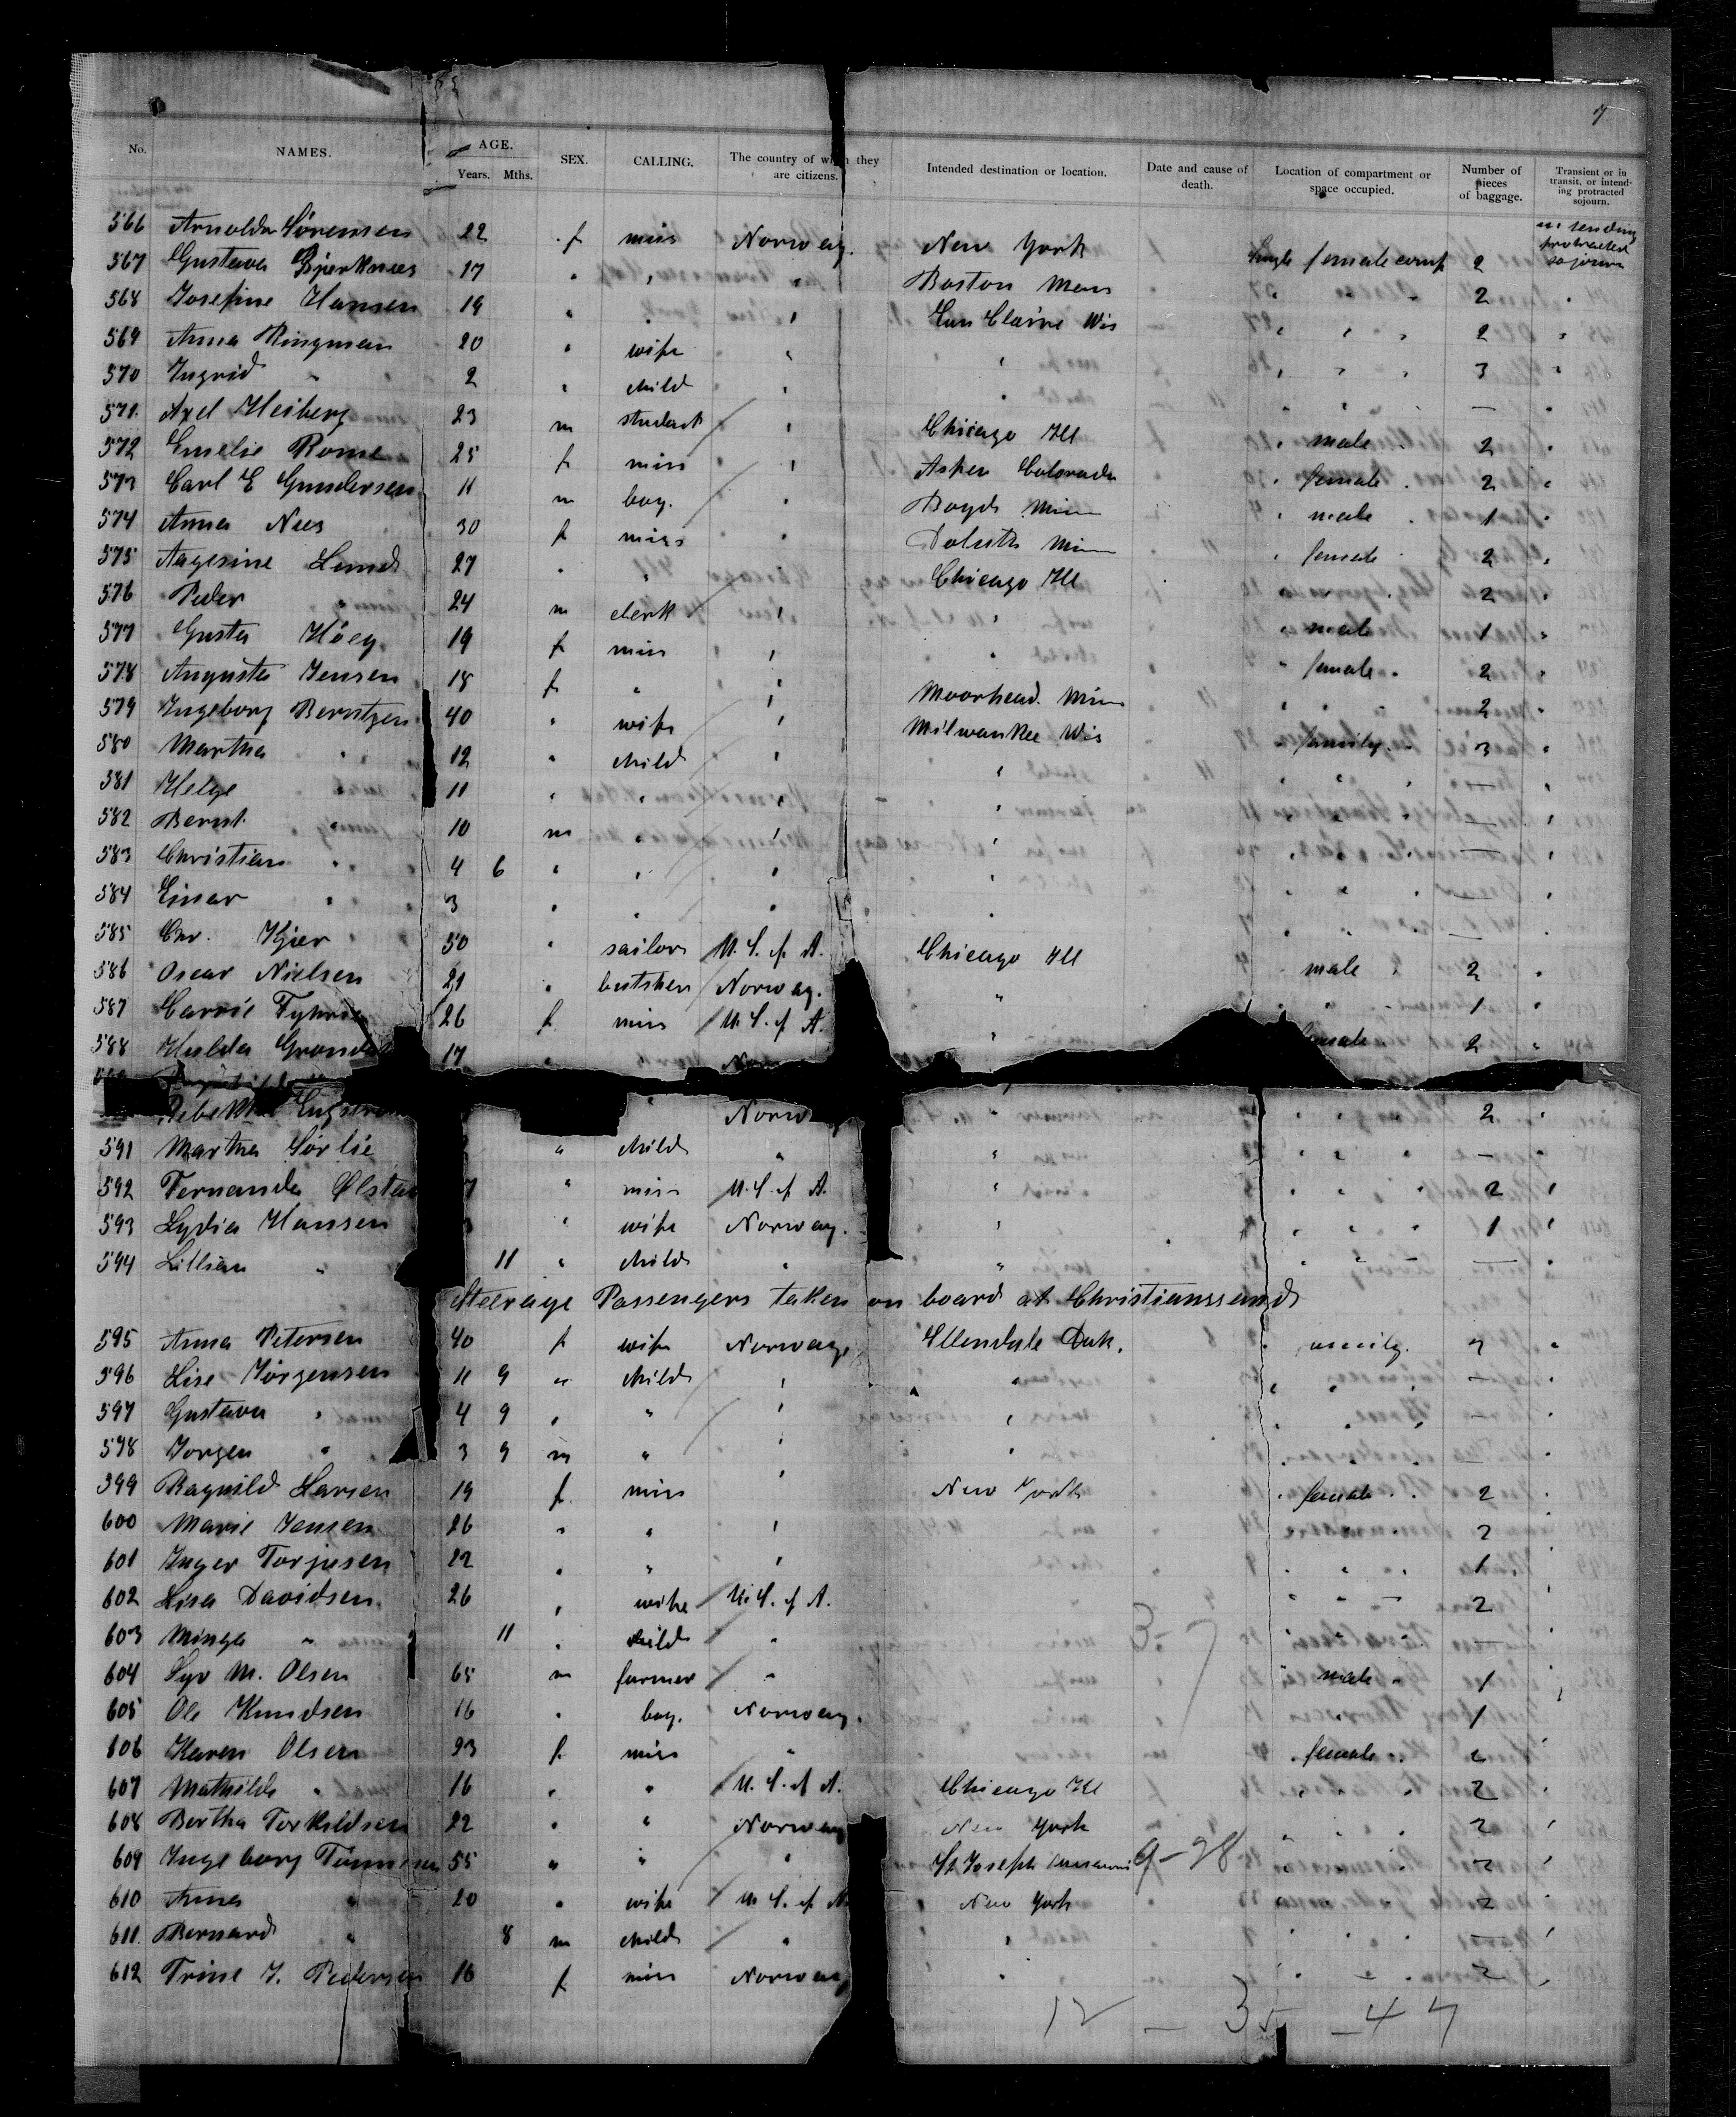 7
No. NAMES. AGE. Years. Mths. SEX. CALLING. The country of which they are citizens. Intended destination or location. Date and cause of death. Location of compartment or space occupied. Number of pieces of baggage. Transient or in transit, or intending protracted sojourn.
566 Arnolda Sörensen 22 f miss Norway. New York Single female comp 2 intending protracted sojourn
567 Gustava Bjerknees 17 " " " Boston Mass " " " 2 "
568 Josefine Hansen 19 " " " Eau Claire Wis " " " 2 "
569 Anna Ringman 20 " wife " " " " " 3 "
570 Ingrid " 2 " child " " " " " — "
571 Axel Heiberg 23 m student " Chicago Ill " male " 2 "
572 Emelie Rome 25 f miss " Aspen Colorado " female " 2 "
573 Carl E Gundersen 11 m boy. " Boyds Minn " male " 1 "
574 Anna Nees 30 f miss " Doluth Minn " female " 2 "
575 Aagesine Lund 27 " " " Chicago Ill " " " 2 "
576 Peder " 24 m clerk " " " male " 1 "
577 Gusta Höeg 19 f miss " " " female " 2 "
578 Augusta Jensen 18 f " " Moorhead Minn " " " 2 "
579 Ingeborg Berntzen 40 " wife " Milwaukee Wis " family " 3 "
580 Martha " 12 " child " " " " " — "
581 Helge " 11 " " " " " " " — "
582 Bernt " 10 m " " " " " " — "
583 Christian " 4 6 " " " " " " " — "
584 Einar " 3 " " " " " " " — "
585 Chr. Kjær 50 " sailor U. S. of A. Chicago Ill " male " 2 "
586 Oscar Nielsen 21 " butsher Norway. " " " " 1 "
587 Carrie 26 f miss U. S. of A. " female " 2 "
588 Hulda 17 "
Norw " " " " 2 "
591 Martha Sörlie " child " " " " " — "
592 Fernanda 7 " miss U. S. of A. " " " " 2 "
593 Lydia Hansen " wife Norway. " " " " 1 "
594 Lillian " 11 " child " " " " — "
Steerage Passengers taken on board at Christianssand
595 Anna Petersen 40 f wife Norway Ellendale Dak. " " "
596 Lise Jörgensen 11 9 " child " " " " " — "
597 Gustava " 4 9 " " " " " " " — "
598 Jorgen " 3 9 m " " " " " " — "
599 Ragnild Larsen 19 f miss " New York " female " 2 "
600 Marie Jensen 26 " " " " " " 2 "
601 Inger Torjusen 22 " " " " " " 1 "
602 Lisa Davidsen 26 " wife U. S. of A. " " " 2 "
603 Minga " 11 " child " " " " — "
604 M. Olsen 65 m farmer " " male " 1 "
605 Ole Knudsen 16 " boy. Norway. " 1 "
606 Karen Olsen 23 f miss " " female " "
607 Mathilde " 16 " " U. S. of A. Chicago Ill " " " 2 "
608 Bertha Torkildsen 22 " " Norway New York " " " 2 "
609 Ingeborg 55 " " " St Joseph Missouri 9-28 " " " 2 "
610 Anna " 20 " wife U. S. of A New York " " " 2 "
611 Bernard " 8 m child " " " " " — "
612 Trine J. Pedersen 16 f miss Norway " " " " 2 "
12 — 35 — 47